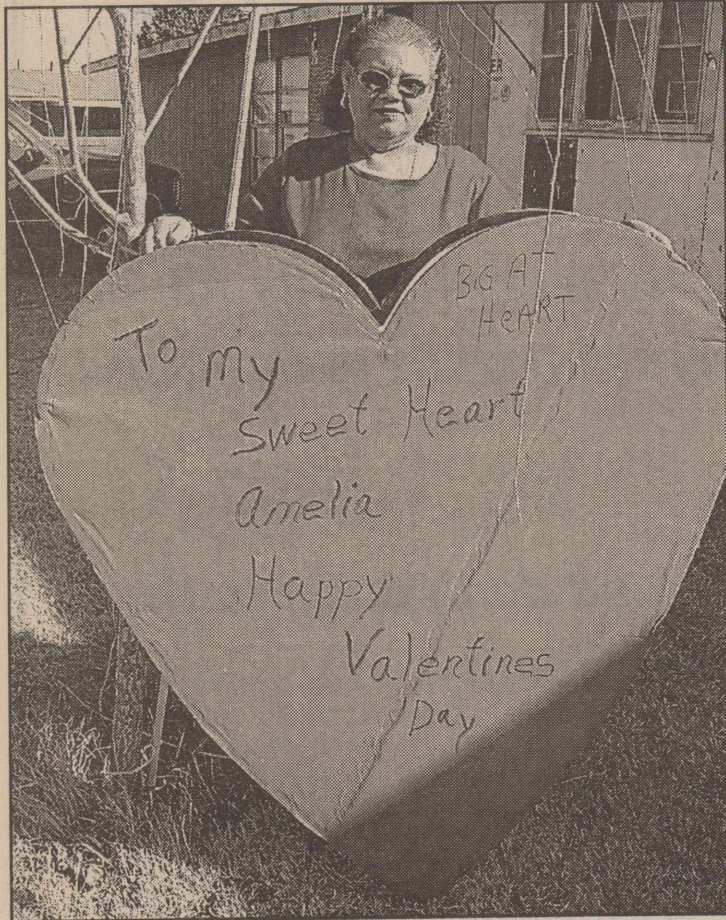 BiG AT
HeART
To my
Sweet Heart
Amelia
Happy
Valentines
Day
ER